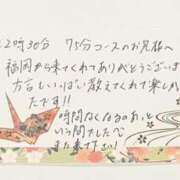 22時30分 75分コースのお兄様へ
福岡から来てくれてありがとうございます
方言いっぱい教えてくれて楽しかっ
たです!!
時間なくなるのあっと
いう間でしたね
また来て下さい!